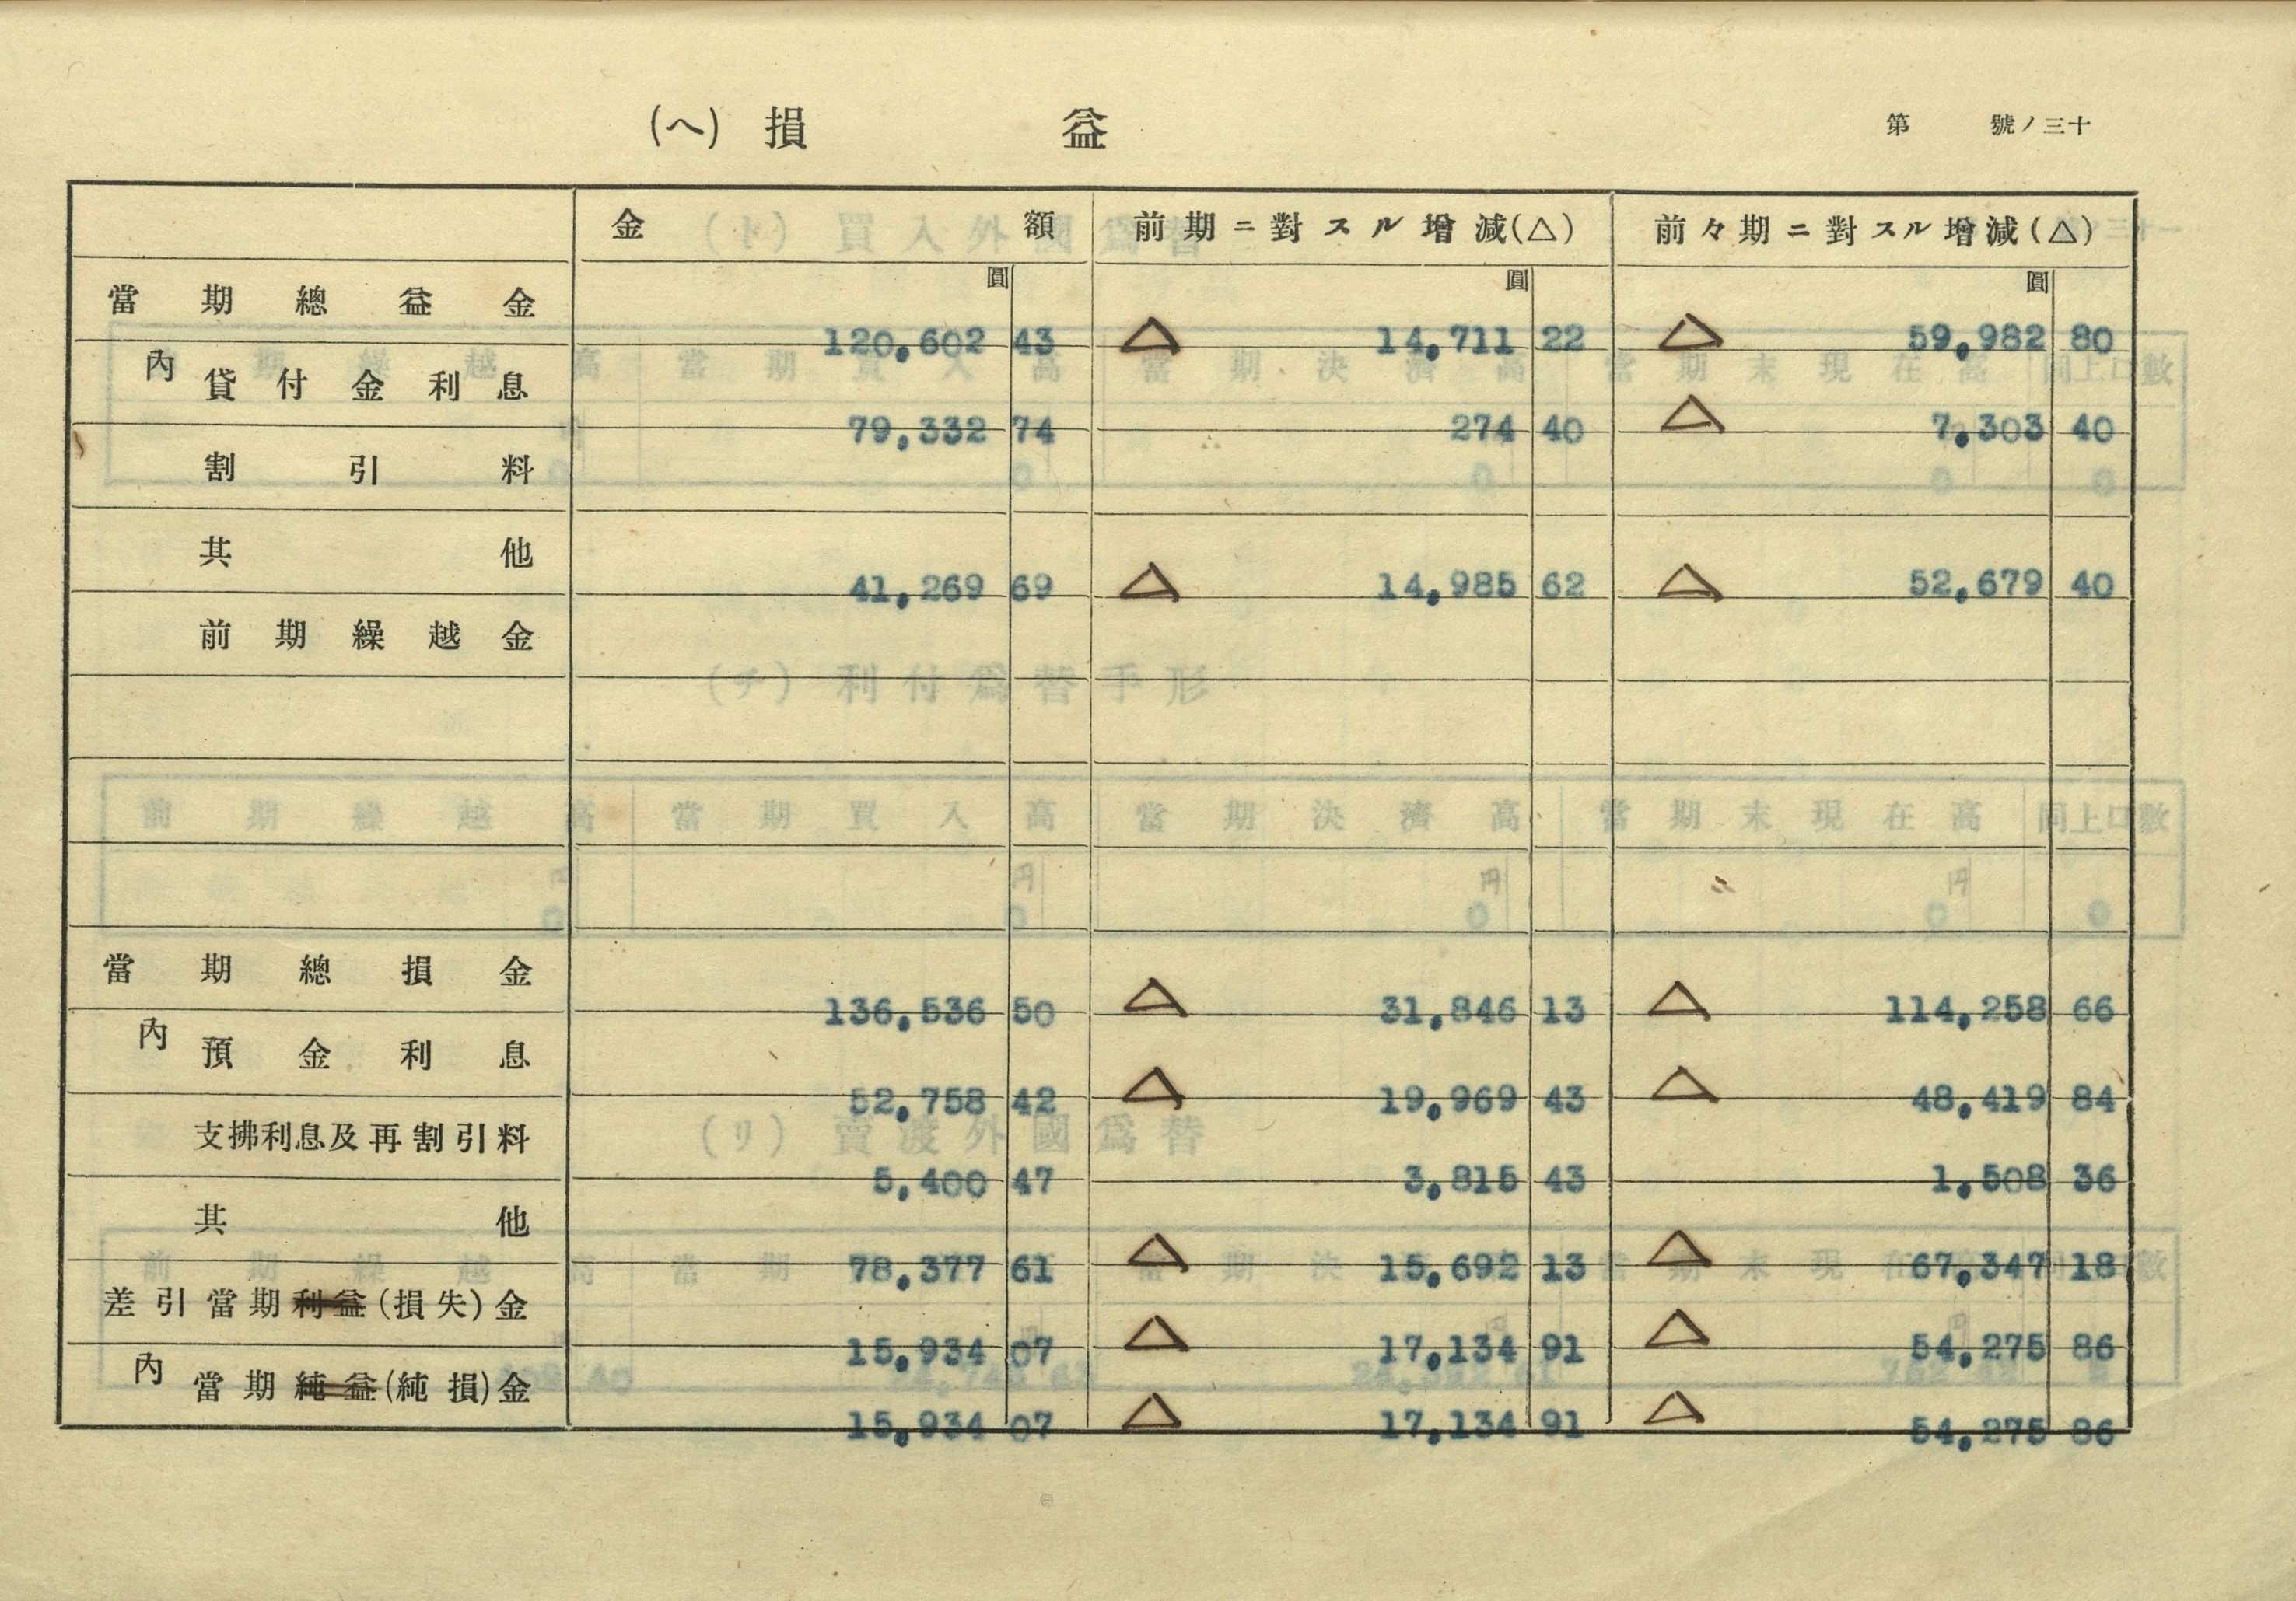 (ヘ) 損 益
第 號ノ三十
金 額 前期ニ對スル增減(△) 前々期ニ對スル增減(△)
圓 圓 圓
當期總益金 120,602 43 △ 14,711 22 △ 59,982 80
內 貸付金利息 79,332 74 274 40 △ 7,303 40
割引料
其他 41,269 69 △ 14,985 62 △ 52,679 40
前期繰越金
當期總損金 136,536 50 △ 31,846 13 △ 114,258 66
內 預金利息 52,758 42 △ 19,969 43 △ 48,419 84
支拂利息及再割引料 5,400 47 3,815 43 1,508 36
其他 78,377 61 △ 15,692 13 △ 67,347 18
差引當期利益(損失)金 15,934 07 △ 17,134 91 △ 54,275 86
內 當期純益(純損)金 15,934 07 △ 17,134 91 △ 54,275 86